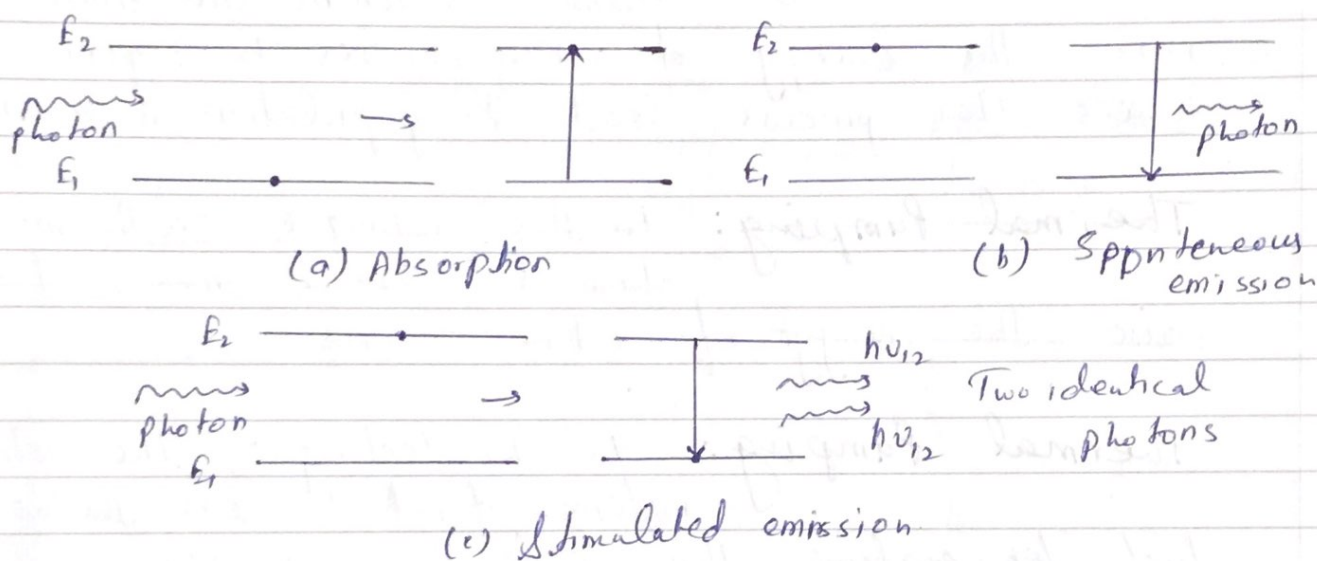 E₂
photon
E₁
(a) Absorption
E₂
photon
E₁
(b) Sppnteneous
emission
E₂
photon
E₁
hν₁₂
hν₁₂
Two identical
photons
(c) Stimulated emission